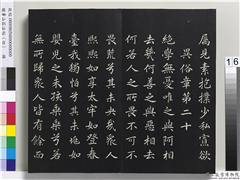 屬見素抱樸少私寡欲
異俗章第二十
絕學無憂唯之與阿相
去幾何善之與惡相去
何若人之所畏不可不
畏荒兮其未央哉眾人
熙熙如享太牢如登春
臺我獨怕兮其未兆如
嬰兒之未孩乘乘兮若
無所歸眾人皆有餘而
16